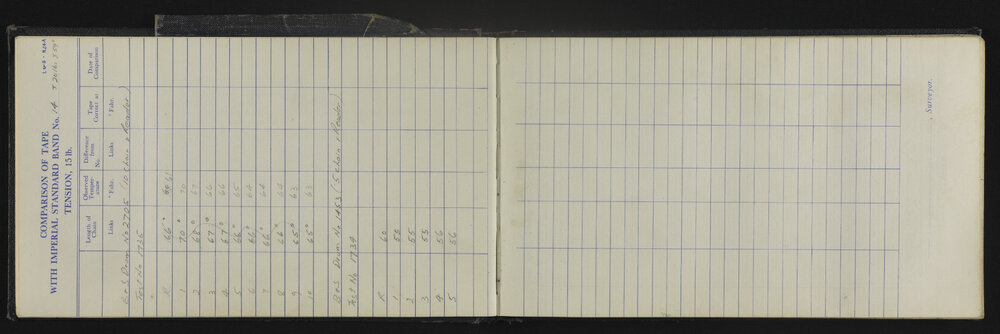 COMPARISON OF TAPE
WITH IMPERIAL STANDARD BAND No. 14
TENSION, 15 lb.
L & S - R24A
Length of Chain
Observed Temperature
Difference from No.
Tape Correct at
Date of Comparison
Links
° Fahr.
Links
° Fahr.
B & S Drum No 2705 (10 Chain & Reader)
Test No 1736
R 66° 66
1 70° 70
2 68° 67
3 67½° 66
4 67° 66
5 66° 65
6 66° 64
7 66° 64
8 66° 64
9 65° 63
10 65° 63
B & S Drum No 1453 (5 Chain & Reader)
Test No 1739
R 60
1 55
2 55
3 55
4 56
5 56
, Surveyor.